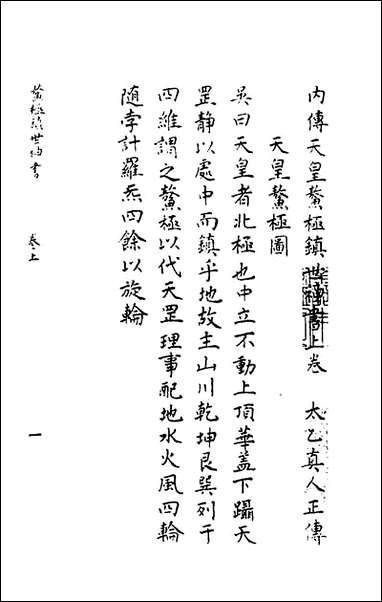 内傳天皇鰲極鎮世神書上卷 太乙真人正傳
天皇鰲極圖
吳曰天皇者北極也中立不動上頂華蓋下躡天
罡靜以處中而鎮乎地故主山川乾坤艮巽列于
四維謂之鰲極以代天罡理事配地水火風四輪
随孛計羅炁四餘以旋輪
鰲極鎮世神書 卷上 一